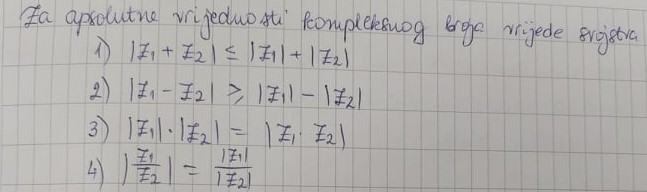 Za apsolutne vrijednosti kompleksnog broja vrijede svojstva
1) |z₁ + z₂| ≤ |z₁| + |z₂|
2) |z₁ - z₂| ≥ |z₁| - |z₂|
3) |z₁| · |z₂| = |z₁ · z₂|
4) |z₁/z₂| = |z₁|/|z₂|